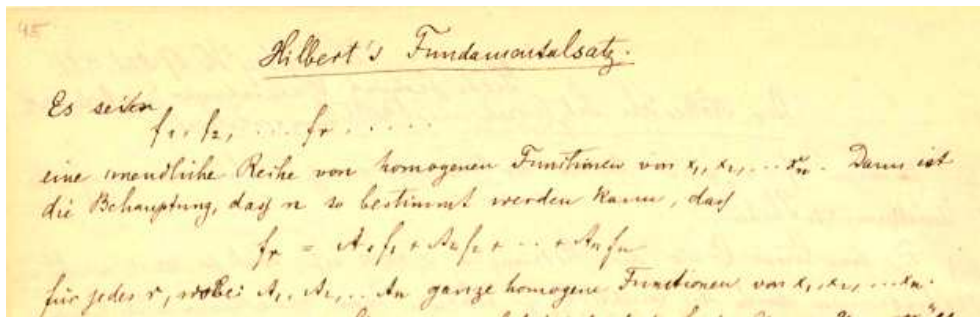 45
Hilbert's Fundamentalsatz.
Es seien
f₁, f₂, .... fᵣ .....
eine unendliche Reihe von homogenen Functionen von x₁, x₂, ... xₙ. Dann ist
die Behauptung, daß n so bestimmt werden kann, daß
fᵣ = A₁f₁ + A₂f₂ + .. + Aₙfₙ
für jedes r, wobei A₁, A₂, .. Aₙ ganze homogene Functionen von x₁, x₂, ... xₙ.